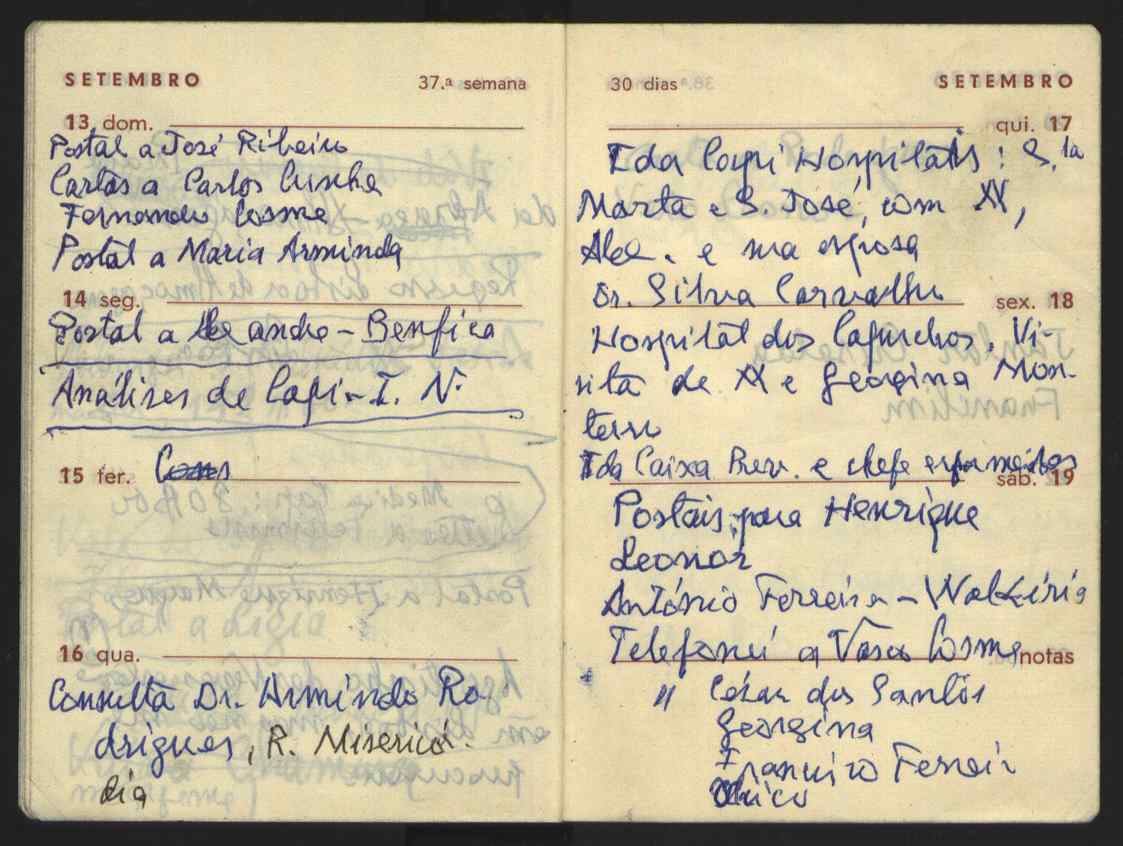 SETEMBRO 37.ª semana
13 dom.
Postal a José Ribeiro
Cartas a Carlos Cunha
Fernando Cosme
Postal a Maria Arminda
14 seg.
Postal a Leandro - Benfica
Análises de Capi - I. N.
15 ter. Cons
16 qua.
Consulta Dr. Armindo Ro-
drigues, R. Misericór-
dia
30 dias SETEMBRO
qui. 17
Ida Capi Hospitais: S.ta
Marta e S. José, com XX,
Abel. e sua esposa
Dr. Silva Carvalho
sex. 18
Hospital dos Capuchos. Vi-
sita de XX e Georgina Mon-
teiro
Ida Caixa Prev. e chefe
sáb. 19
Postais para Henrique
Leonor
António Ferreira - Walkíria
Telefonei a Vasco Cosme
notas
" César dos Santos
Georgina
Francisco Ferreir
Chico